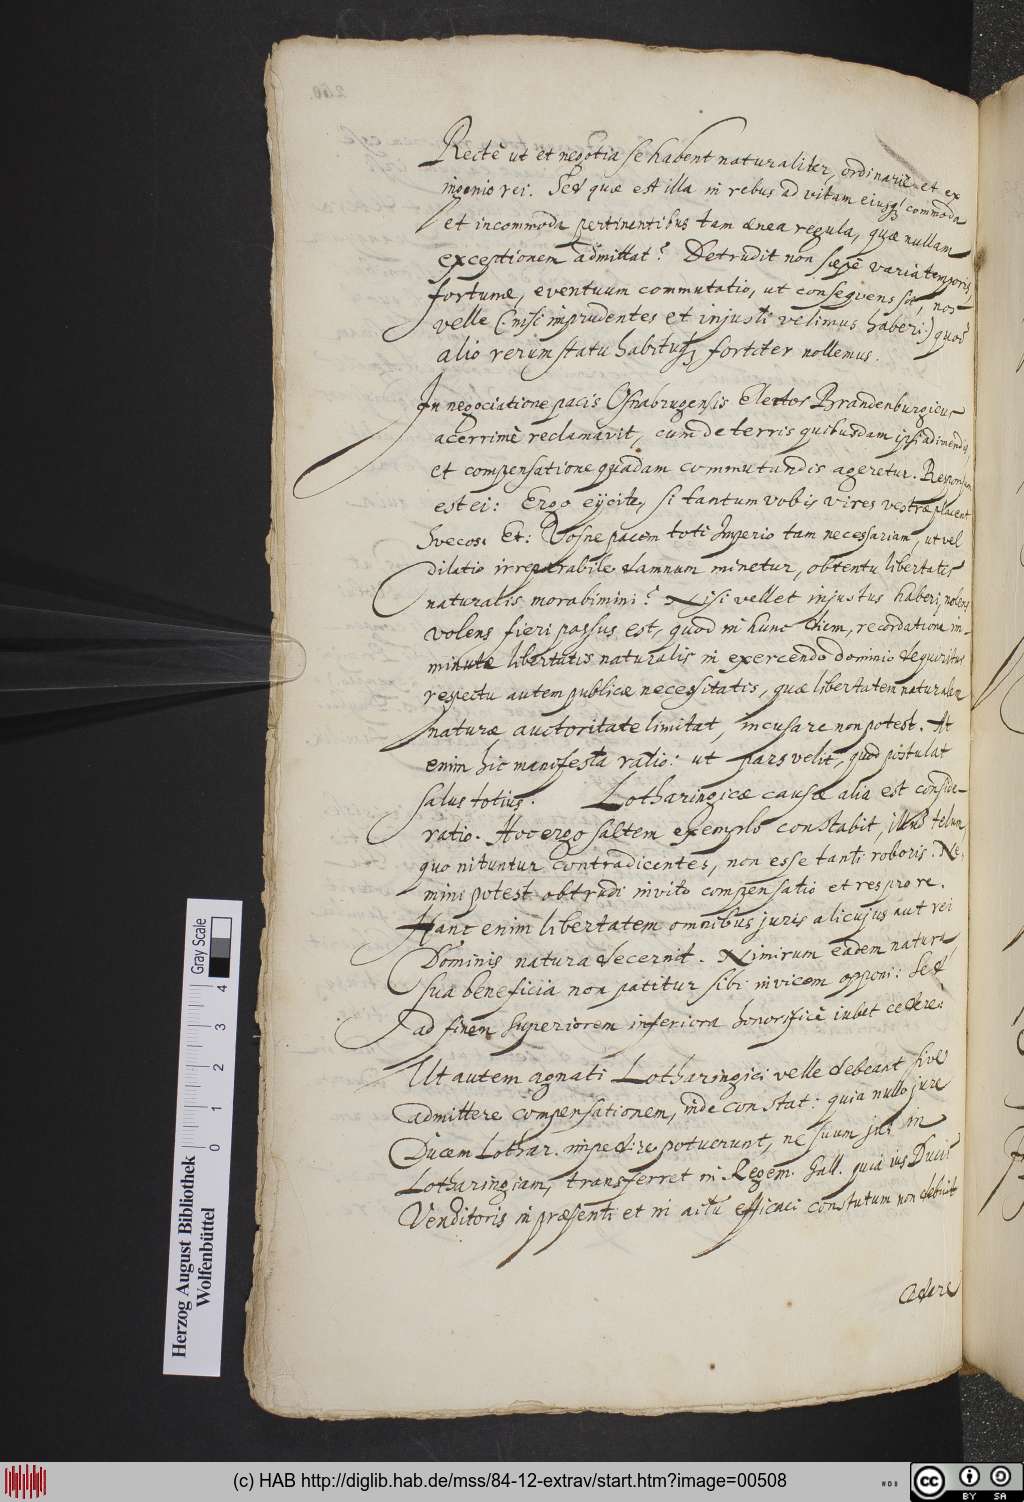 Rectè ut et negotia se habent naturaliter, ordinariè et ex
ingenio rei. Sed quæ est illa in rebus ad vitam eiusq; commoda
et incommoda pertinentibus tam ænea regula, quæ nullam
exceptionem admittat? Detrudit non sæpè varia temporis,
fortunæ, eventuum commutatio, ut consequens sit, nos
velle (: nisi imprudentes et injusti velimus haberi :) quod
alio rerum statu habituq; fortiter nollemus.
In negociatione pacis Osnabrugensis Elector Brandenburgicus
acerrimè reclamavit, cum de terris quibusdam ipsi adimendis
et compensatione quadam commutandis ageretur. Responsum
est ei: Ergo eijcite, si tantum vobis vires vestræ placent
Svecos. Et: Vosne pacem toti Imperio tam necessariam, ut vel
dilatio irreparabile damnum minetur, obtentu libertatis
naturalis morabimini? Nisi vellet injustus haberi, nolens
volens fieri passus est, quod in hunc diem, recordatione im-
minutæ libertatis naturalis in exercendo dominio
respectu autem publicæ necessitatis, quæ libertatem naturalem
naturæ auctoritate limitat, incusare non potest. At
enim hic manifesta ratio: ut pars velit, quod postulat
salus totius. Lotharingicæ causæ alia est conside-
ratio. Hoc ergo saltem exemplo constabit, illud telum
quo nituntur contradicentes, non esse tanti roboris. Ne-
mini potest obtrudi invito compensatio et res pro re.
Hanc enim libertatem omnibus juris alicujus aut rei
Dominis natura decernit. Nimirum eadem natura,
sua beneficia non patitur sibi invicem opponi: Sed
ad finem superiorem inferiora honorificè iubet cedere.
Ut autem agnati Lotharingici velle debeant sive
admittere compensationem, inde constat: quia nullo jure
Ducem Lothar. impedire potuerunt, ne suum jus in
Lotharingiam, transferret in Regem Gall. quia ius Ducis
Venditoris in præsenti et in actu efficaci constitutum non debuit
cedere
Herzog August Bibliothek
Wolfenbüttel
Gray Scale
0 1 2 3 4
(c) HAB http://diglib.hab.de/mss/84-12-extrav/start.htm?image=00508
cc BY SA